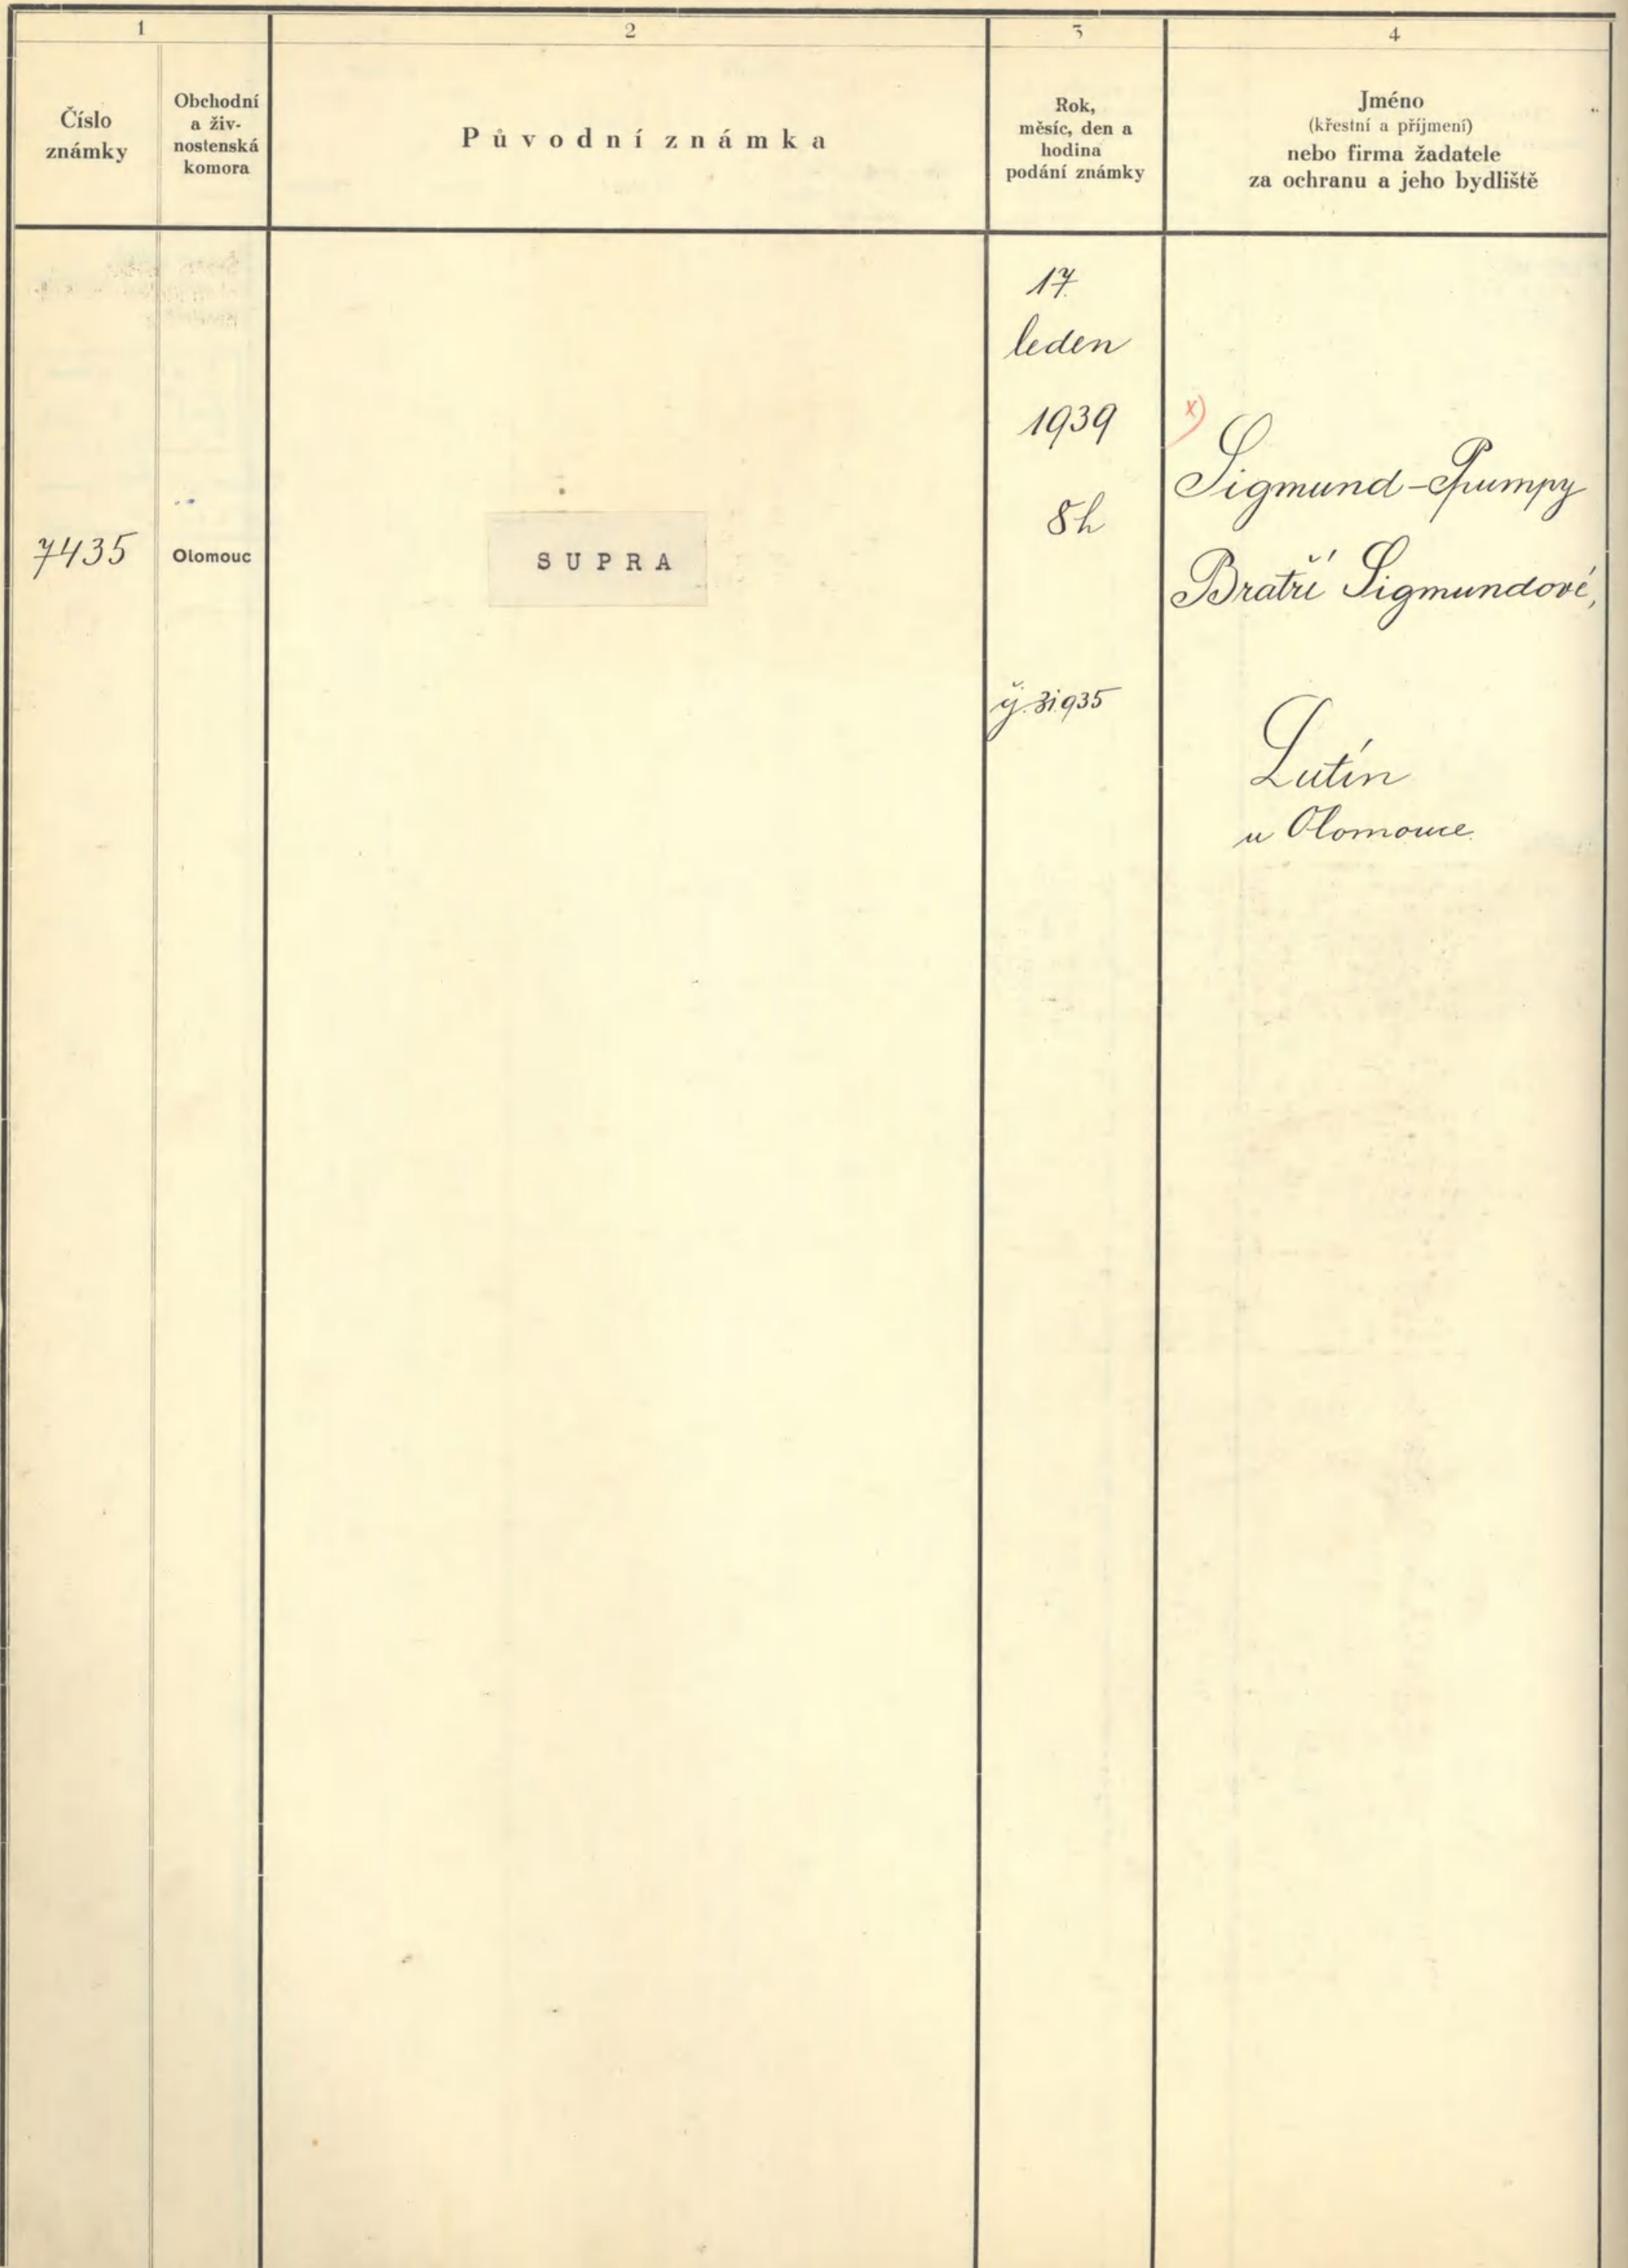 1
2
3
4
Číslo
známky
Obchodní
a živ-
nostenská
komora
Původní známka
Rok,
měsíc, den a
hodina
podání známky
Jméno
(křestní a příjmení)
nebo firma žadatele
za ochranu a jeho bydliště
7435
Olomouc
SUPRA
17.
leden
1939
8h
čj. 31935
x)
Sigmund-Pumpy
Bratří Sigmundové,
Lutín
u Olomouce.